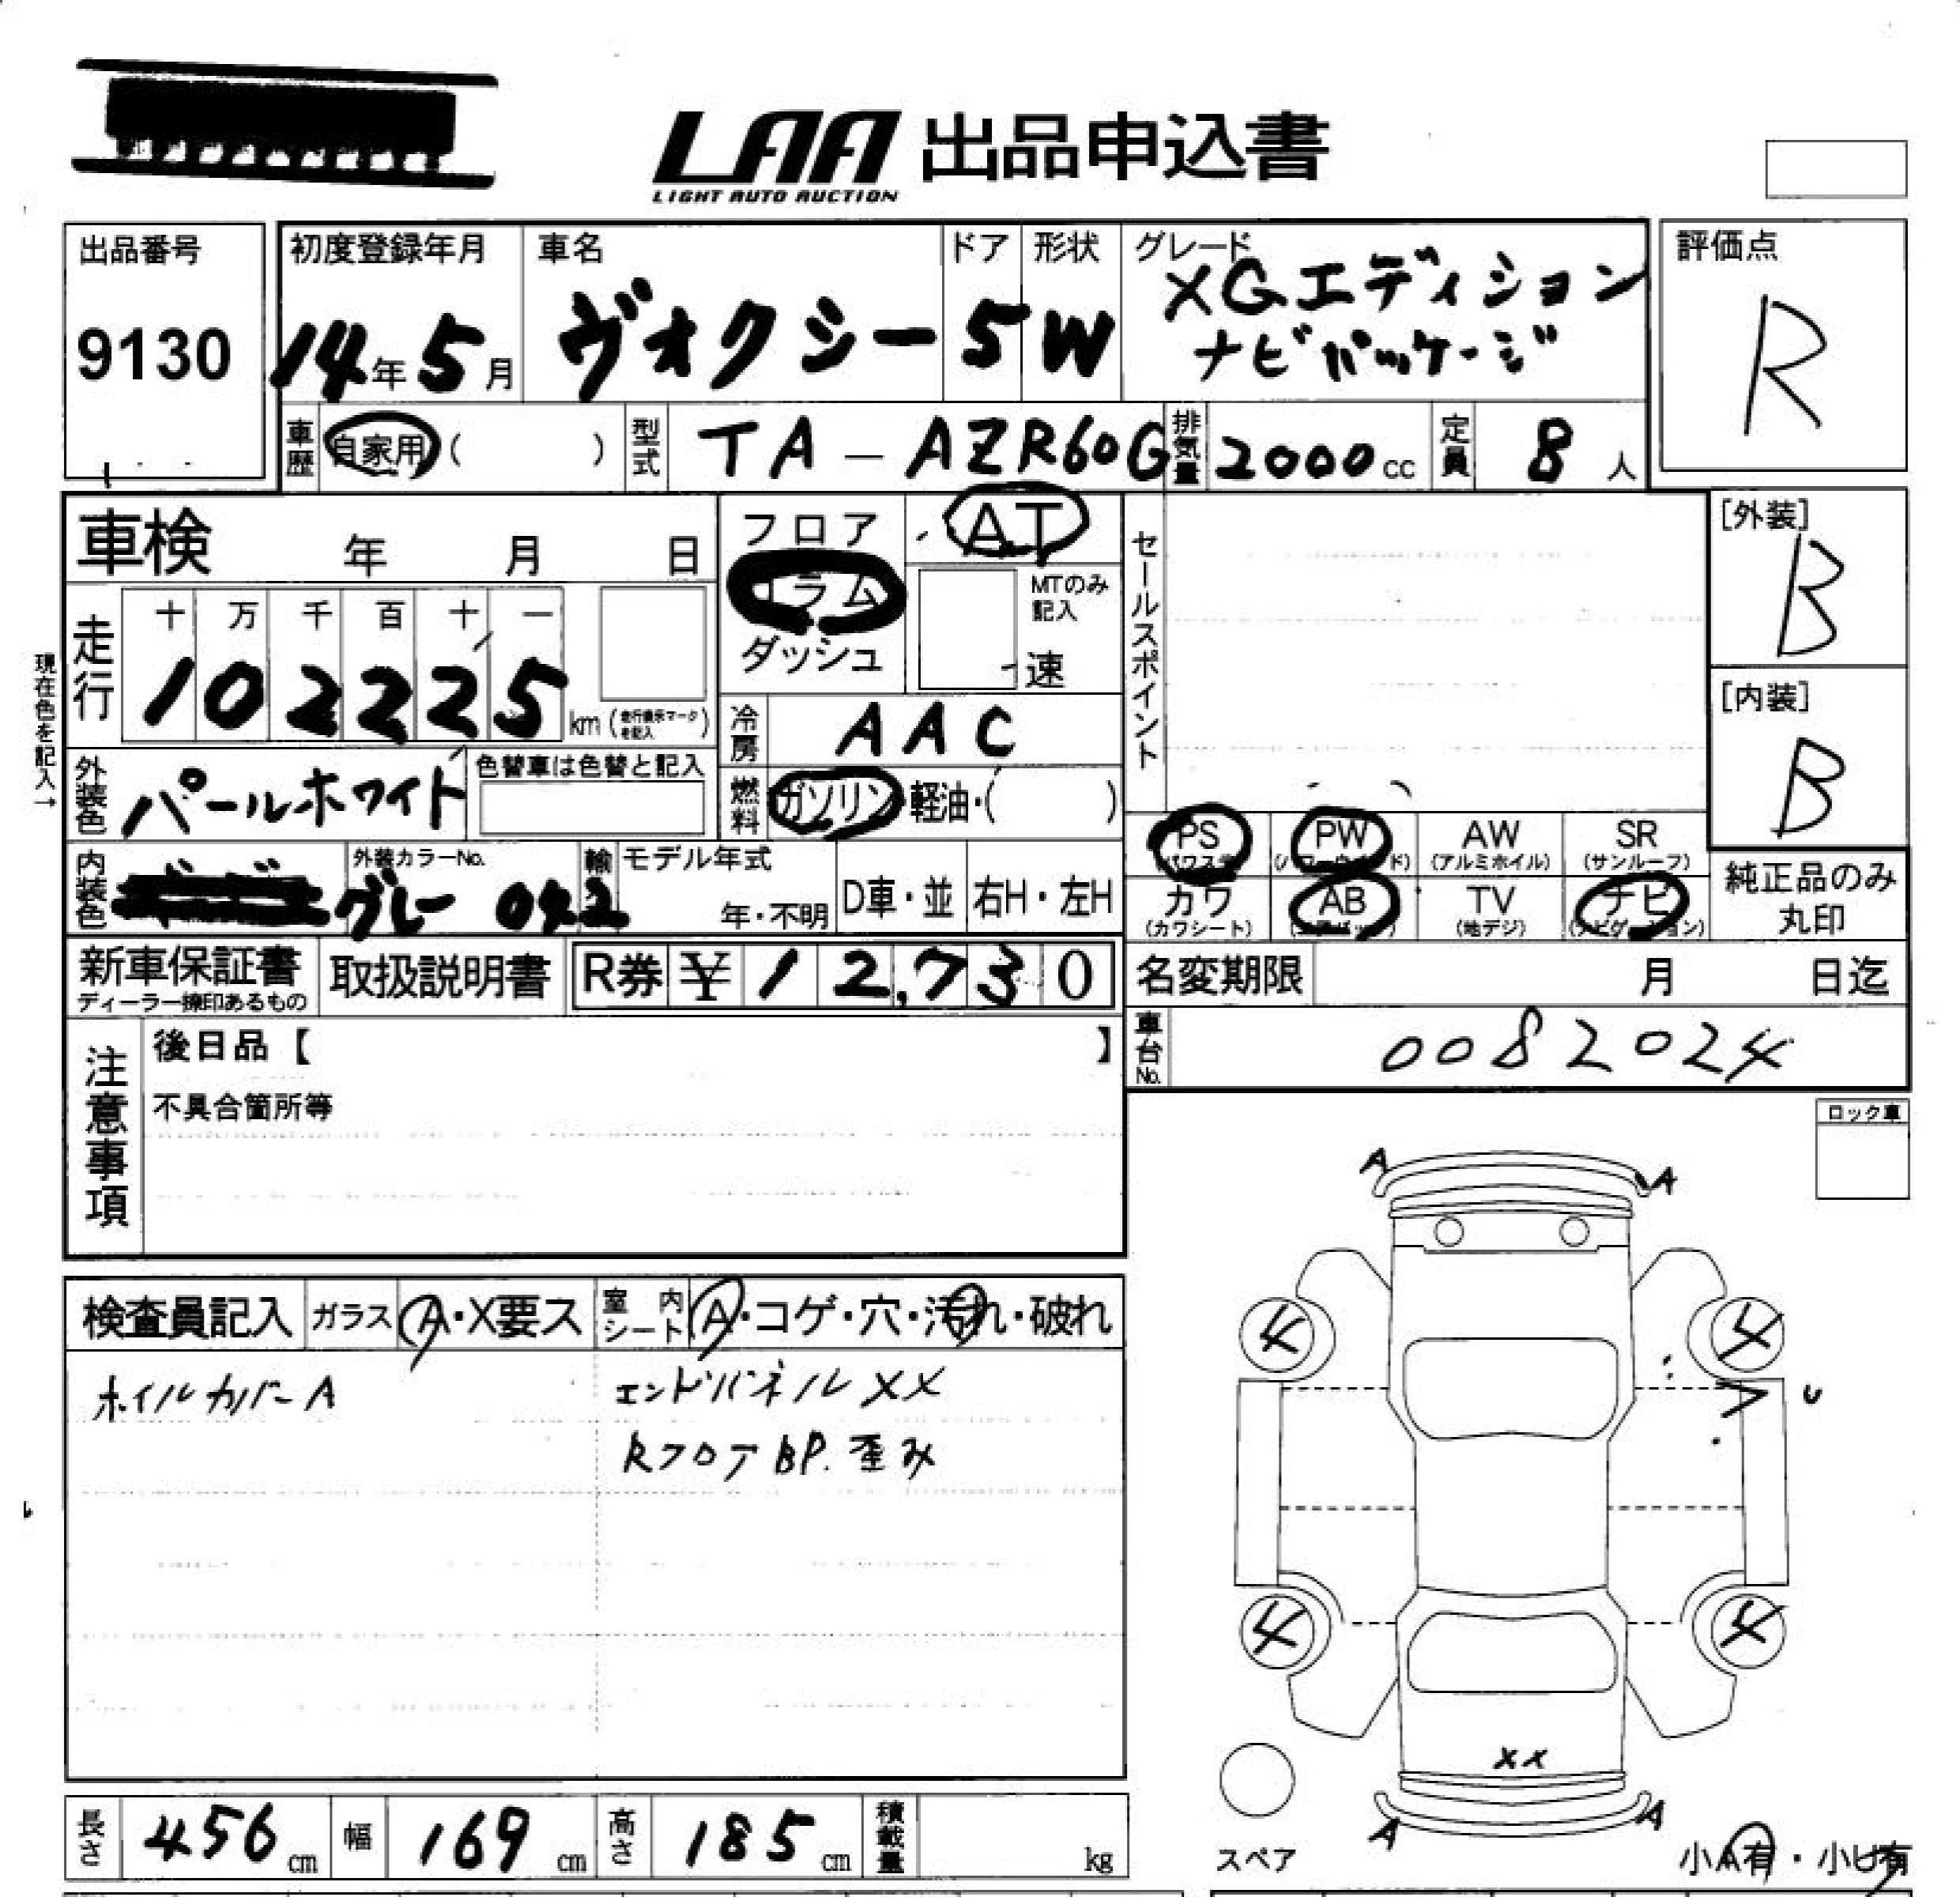 LAA 出品申込書
LIGHT AUTO AUCTION
出品番号
9130
初度登録年月
14年5月
車名
ヴォクシー
ドア
5
形状
W
グレード
XGエディション
ナビパッケージ
評価点
R
車歴 自家用 ( )
型式 TA-AZR60G
排気量 2000cc
定員 8人
車検 年 月 日
フロア
コラム
ダッシュ
AT
MTのみ
記入
速
セールスポイント
[外装]
B
[内装]
B
現在色を記入→
走行
十 万 千 百 十 一
1 0 2 2 2 5 km (走行表示マークを記入)
冷房 AAC
外装色 パールホワイト
色替車は色替と記入
燃料 ガソリン・軽油・( )
内装色 グレー
外装カラーNo.
042
輸
モデル年式
年・不明
D車・並
右H・左H
PS
(パワステ)
PW
(パワーウインド)
AW
(アルミホイル)
SR
(サンルーフ)
カワ
(カワシート)
AB
(エアバッグ)
TV
(地デジ)
ナビ
(ナビゲーション)
純正品のみ
丸印
新車保証書
ディーラー捺印あるもの
取扱説明書
R券 ¥ 12,730
名変期限 月 日迄
車台No. 0082024
注意事項
後日品【 】
不具合箇所等
ロック車
検査員記入
ガラス A・X要ス
室内シート A・コゲ・穴・汚れ・破れ
ホイルカバーA
エンドパネルXX
RフロアBP.歪み
A A
4 4
U
4 4
XX
A A
スペア
小A有・小U有
長さ 456cm
幅 169cm
高さ 185cm
積載量 kg